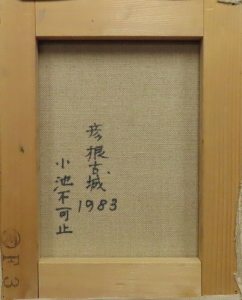 彦根古城
1983
小池不可止
F3